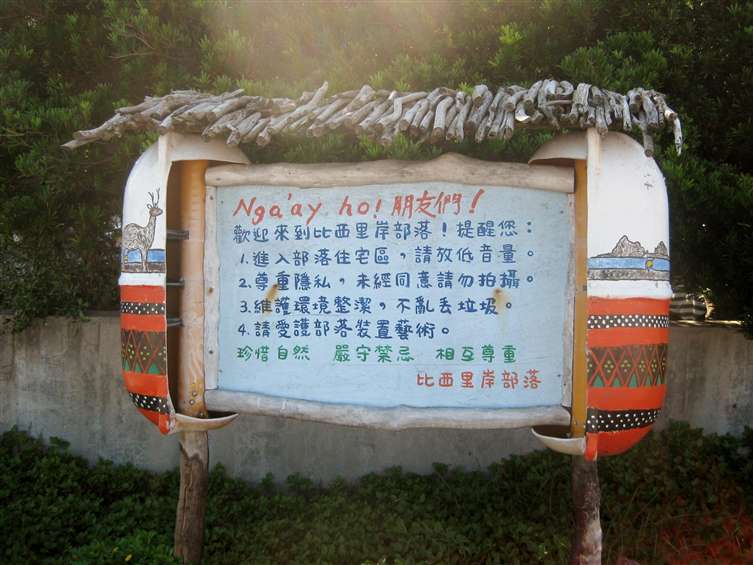 Nga'ay ho! 朋友們!
歡迎來到比西里岸部落!提醒您:
1.進入部落住宅區,請放低音量。
2.尊重隱私,未經同意請勿拍攝。
3.維護環境整潔,不亂丟垃圾。
4.請愛護部落裝置藝術。
珍惜自然 嚴守禁忌 相互尊重
比西里岸部落